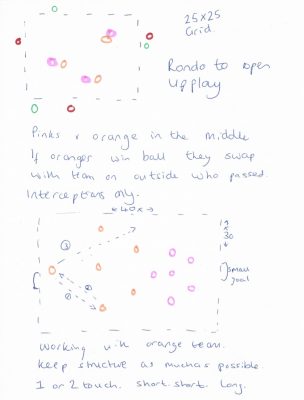 25x25
Grid
Rondo to open
up play
Pinks v orange in the middle
If oranges win ball they swap
with team on outside who passed.
Interceptions only.
← 40x →
30
small
goal
③
①
②
working with orange team.
keep structure as much as possible
1 or 2 touch. short. short. long.